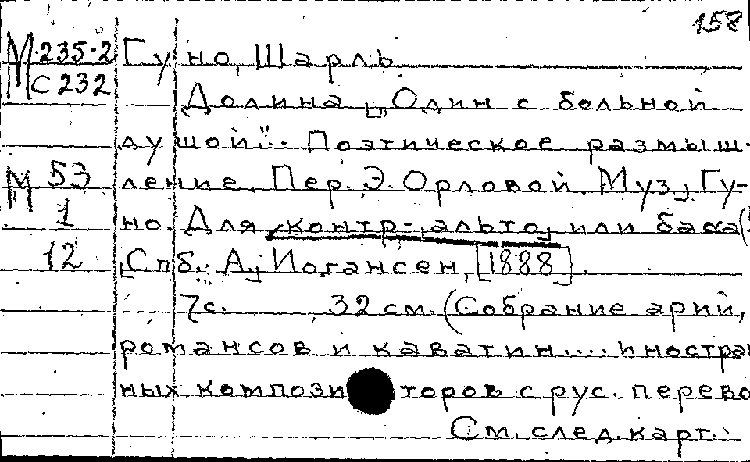 158
М 235-2 Гуно, Шарль.
С 232
Долина „Один с больной
душой“.. Поэтическое размыш-
М 53 ление. Пер. Э. Орловой. Муз. Гу-
1 но. Для контр-альто, или баса(
12 Спб., А. Иогансен, [1888].
7с. 32 см. (Собрание арий,
романсов и каватин... иностран
ных композиторов с рус. перево
См. след. карт.